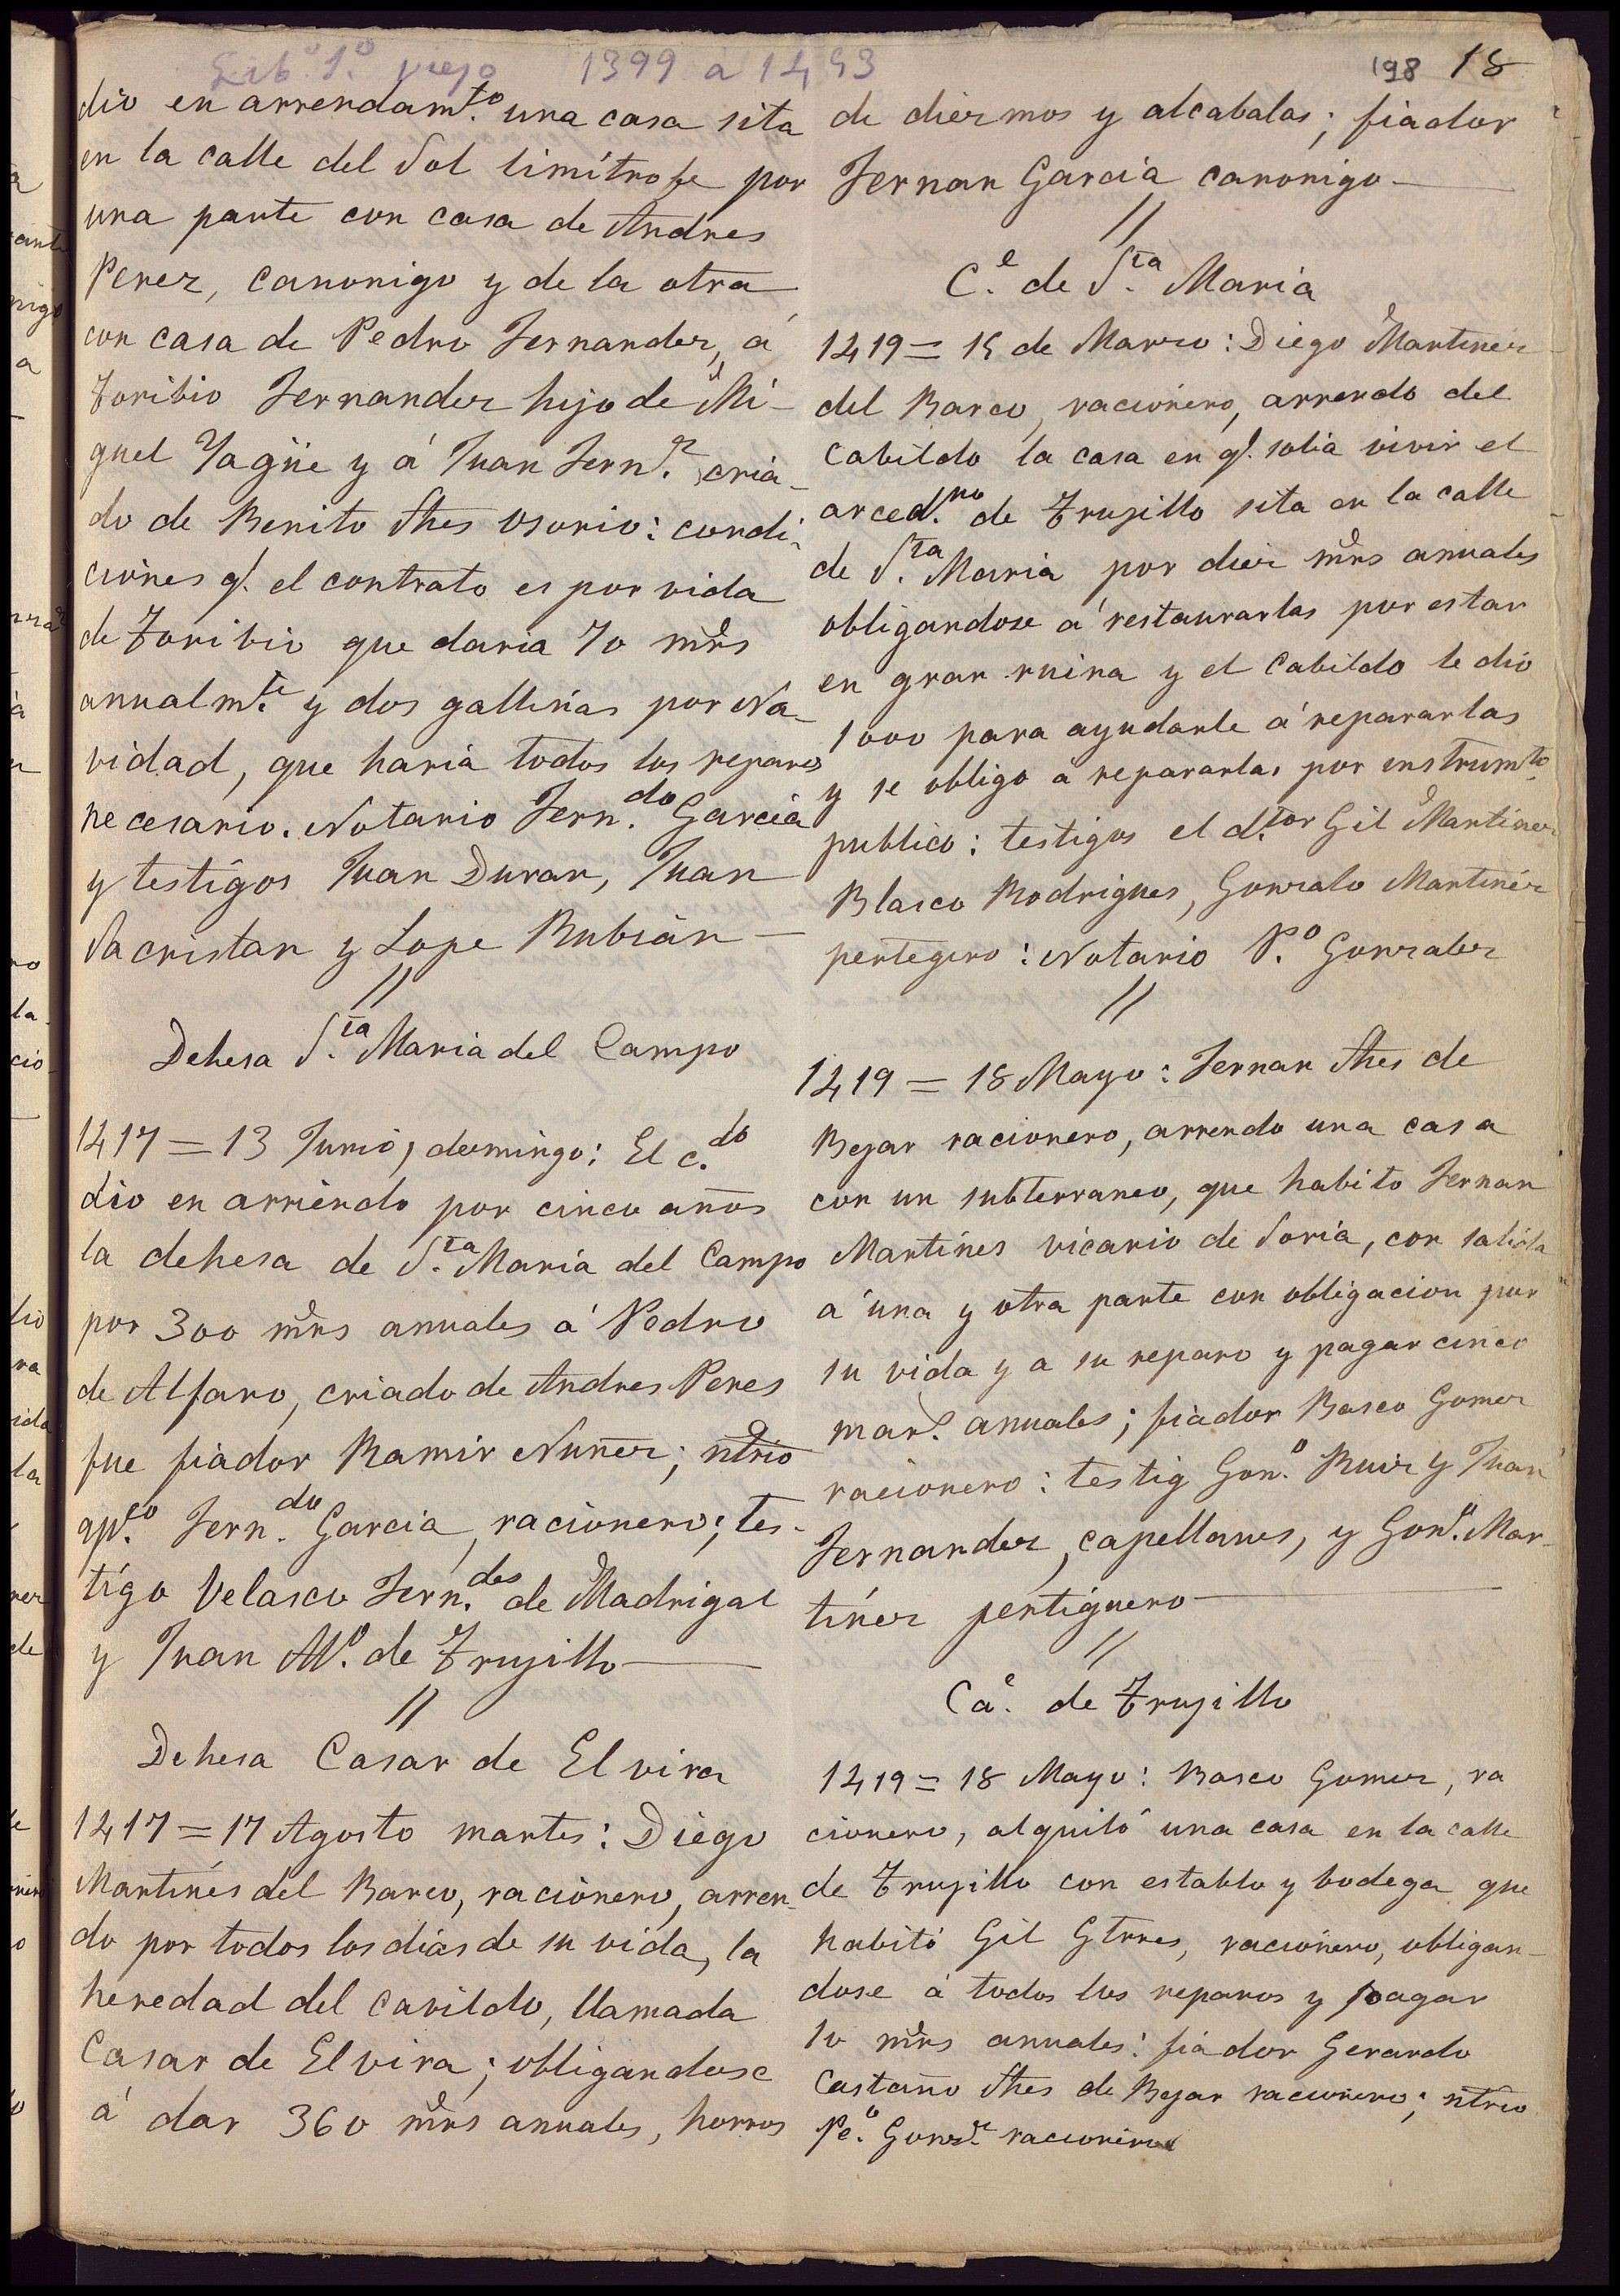 Lib.º 1.º viejo 1399 a 1453
198 18
dio en arrendam.to una casa sita
en la calle del Sol limítrofe por
una parte con casa de Andres
Perez, canonigo y de la otra
con casa de Pedro Fernandez, á
Toribio Fernandez hijo de Mi-
guel Yagüe y á Juan Fern.z cria-
do de Benito Shes Osorio: condi-
ciones q.e el contrato es por vida
de Toribio que daria 70 mrs
anualm.te y dos gallinas por Na-
vidad, que haria todos los reparos
necesario. Notario Fern.do Garcia
y testigos Juan Duran, Juan
Sacristan y Lope Rubián —
//
Dehesa S.ta Maria del Campo
1417 = 13 Junio, domingo: El c.do
dio en arriendo por cinco años
la dehesa de S.ta Maria del Campo
por 300 mrs anuales á Pedro
de Alfaro, criado de Andres Peres
fue fiador Ramir Nuñez; ntrio
ap.co Fern.do Garcia, racionero; tes-
tigo Velasco Fern.des de Madrigal
y Juan M.o de Trujillo —
//
Dehesa Casar de Elvira
1417 = 17 Agosto martes: Diego
Martines del Barco, racionero, arren-
do por todos los dias de su vida, la
heredad del cavildo, llamada
Casar de Elvira; obligandose
á dar 360 mrs anuales, horros
de diezmos y alcabalas; fiador
Fernan Garcia canonigo —
//
C.e de S.ta Maria
1419 = 15 de Marzo: Diego Martinez
del Barco, racionero, arrendo del
Cabildo la casa en q.e solia vivir el
arced.no de Trujillo sita en la calle
de S.ta Maria por diez mrs anuales
obligandose á restaurarlas por estar
en gran ruina y el Cabildo le dio
1000 para ayudarle á repararlas
y se obligo á repararlas por instrum.to
publico: testigos el d.tor Gil Martinez
Blasco Rodrigues, Gonzalo Martinéz
pertegero: Notario P.o Gonzalez
//
1419 = 18 Mayo: Fernan Shes de
Bejar racionero, arrendo una casa
con un subterraneo, que habito Fernan
Martines vicario de Soria, con salida
á una y otra parte con obligacion por
su vida y a su reparo y pagar cinco
mar.s anuales; fiador Basco Gomez
racionero: testig Gon.o Ruiz y Juan
Fernandez, capellanes, y Gon.o Mar-
tinez pertiguero —
//
Ca.e de Trujillo
1419 = 18 Mayo: Basco Gomez, ra
cionero, alquiló una casa en la calle
de Trujillo con establo y bodega que
habitó Gil Gtrres, racionero, obligan-
dose á todos los reparos y pagar
10 mrs anuales: fiador Gerardo
Castaño Shes de Bejar racionero; ntrio
Pe.o Gonz.z racionero